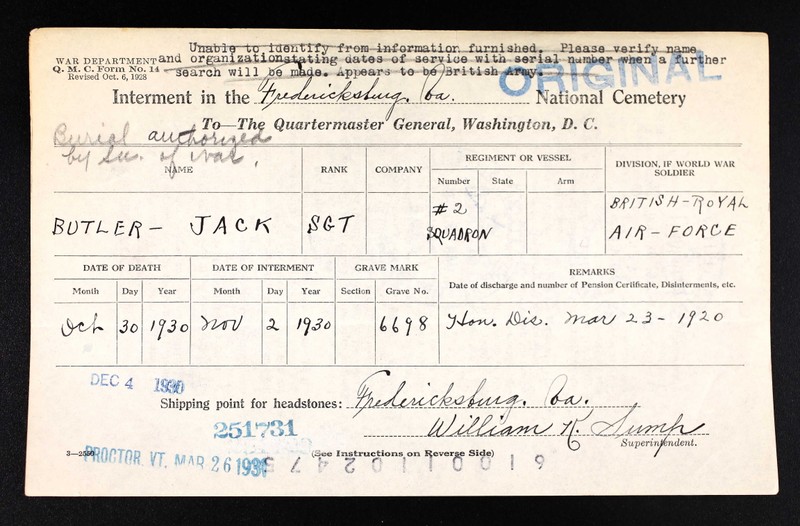 Unable to identify from information furnished. Please verify name
and organization stating dates of service with serial number when a further
search will be made. Appears to be British Army.
WAR DEPARTMENT
Q. M. C. Form No. 14
Revised Oct. 6, 1928
ORIGINAL
Interment in the Fredericksburg, Va. National Cemetery
To—The Quartermaster General, Washington, D. C.
Burial authorized
by Sec. of War.
NAME RANK COMPANY REGIMENT OR VESSEL DIVISION, IF WORLD WAR SOLDIER
Number State Arm
BUTLER— JACK SGT #2 SQUADRON BRITISH-ROYAL AIR-FORCE
DATE OF DEATH DATE OF INTERMENT GRAVE MARK REMARKS
Month Day Year Month Day Year Section Grave No. Date of discharge and number of Pension Certificate, Disinterments, etc.
Oct 30 1930 Nov 2 1930 6698 Hon. Dis. Mar 23-1920
DEC 4 1930
Shipping point for headstones: Fredericksburg, Va.
251731
William K. Sump
Superintendent.
3—2590
(See Instructions on Reverse Side)
PROCTOR, VT. MAR 26 1931